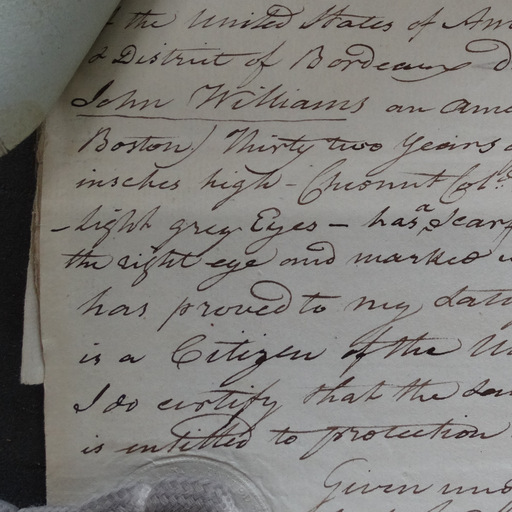 the United States of Am
& District of Bordeaux d
John Williams an Ame
Boston) Thirty two Years o
insches high - Chesnut Col.d
- light grey Eyes - has a Scarf
the right eye and marked w
has proved to my sati
is a Citizen of the Un
I do certify that the sa
is entitled to protection
Given und